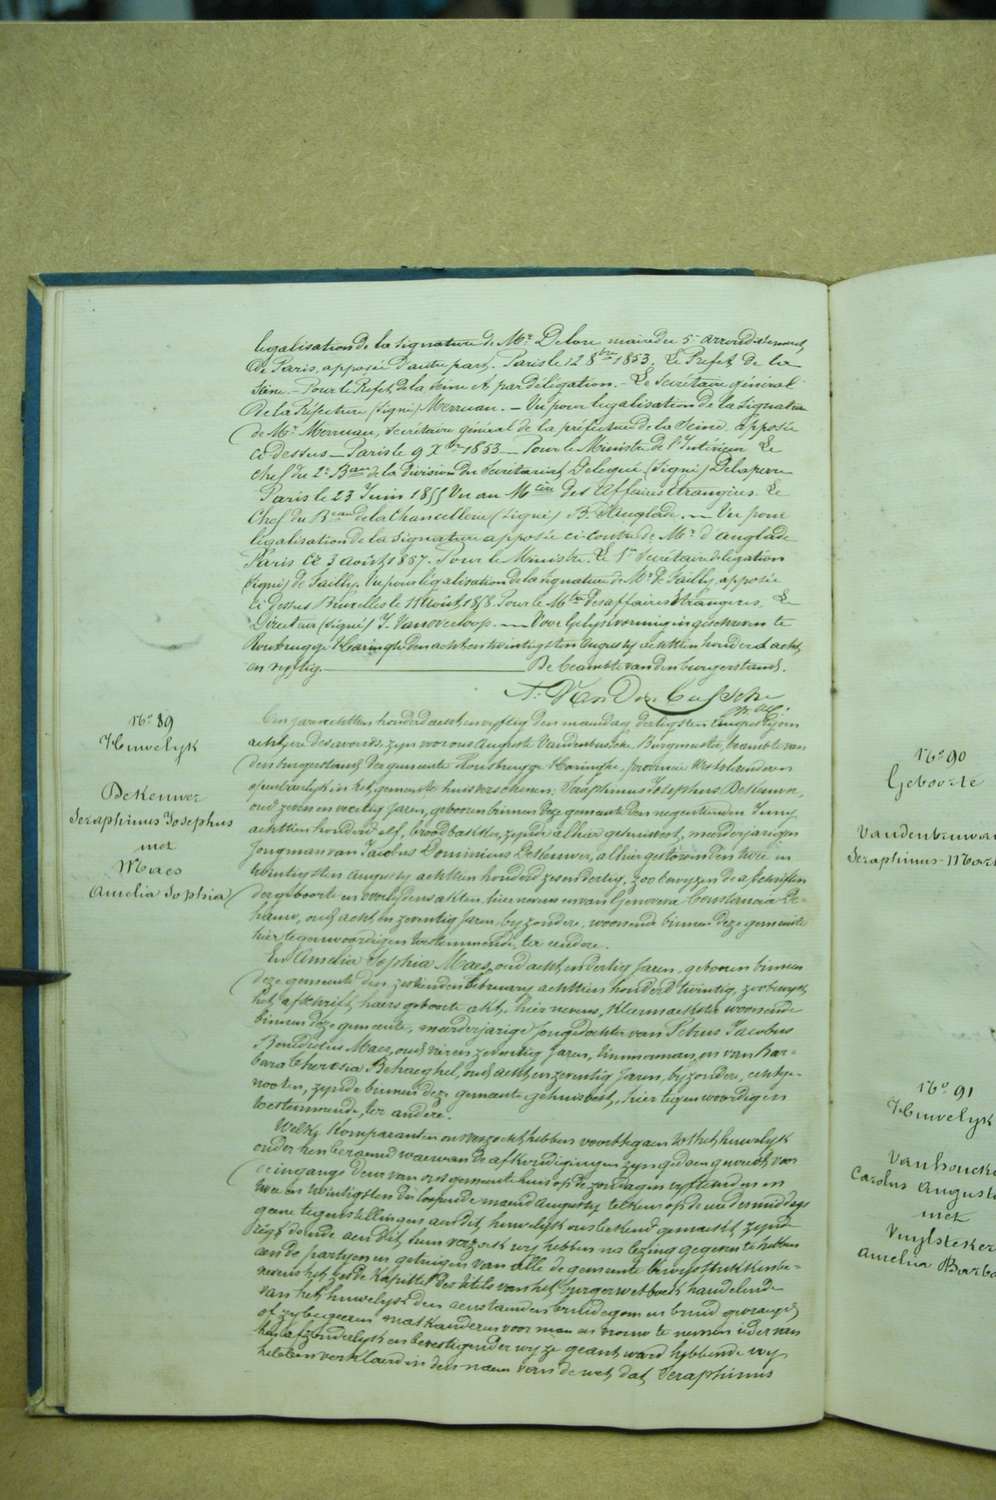 legalisation de la signature de Mr. Delore maire du 5e arrondissement
de Paris, apposée d'autre part. Paris le 12 8bre 1853. Le Préfet de la
Seine. - Pour le Préfet de la Seine et par délégation. - Le Secrétaire général
de la Préfecture (signé) Merruau. - Vu pour légalisation de la signature
de Mr. Merruau, secrétaire général de la préfecture de la Seine, apposée
ci dessus - Paris le 9 Xbre 1853 - Pour le Ministre de l'Intérieur Le
Chef du 2e Bau de la division du Secrétariat Délégué (signé)
Paris le 23 Juin 1855 Vu au Mtère des Affaires Etrangères. Le
Chef du Bau de la Chancellerie (signé) B. d'Anglade. - Vu pour
légalisation de la signature apposée ci-contre de Mr. d'anglade
Paris le 3 août 1857. Pour le Ministre. Le 1er Secrétaire de légation
(signé) de Failly. Vu pour légalisation de la signature de Mr. de Failly, apposée
ci dessus Bruxelles le 11 août 1858. Pour le Mtre des affaires Etrangères. Le
Directeur (signé) J. Vanoverloop. - Voor gelijkvormig ingeschreven te
Rousbrugge Haringhe den acht en twintigsten augusty achttien honderd acht
en vyftig. De beambte van den burgerstand.
A. Van Den Bussche
No. 89
Huwelyk
Dekeuwer
Seraphinus Josephus
met
Maes
Amelia Sophia
Een jaar achttien honderd acht en vyftig den maandag dertigsten augusty om
acht ure des avonds, zyn voor ons Auguste Vandenbussche Burgmeester, beambte van
den burgerstand der gemeente Rousbrugge Haringhe, provincie Westvlaenderen
openbaerlyk in het gemeente huis verschenen: Seraphinus Josephus Dekeuwer,
oud zeven en veertig jaren, geboren binnen deze gemeente den negentienden Juny
achttien honderd elf, broodbakker, zynde alhier gehuisvest, meerderjarigen
jongman van Jacobus Dominicus Dekeuwer, alhier gestorven den twee en
twintigsten augusty achttien honderd zes en dertig, zoo bewyzen de afschriften
der geboorte en overlydens akten, hier nevens en van Genoveva Constancia De-
hauw, oud acht en zeventig jaren, byzondere, woonende binnen deze gemeente
hier tegenwoordig en toestemmende, ter eendere.
En Amelia Sophia Maes, oud acht en dertig jaren, geboren binnen
deze gemeente den zestienden february achttien honderd twintig, zoo bewyst
het afschrift haers geboorte akt, hier nevens, kleermaekster woonende
binnen deze gemeente, meerderjarige jongdochter van Petrus Jacobus
Benedictus Maes, oud vier en zeventig jaren, timmerman, en van Bar-
bara Theresia Behaeghel, oud acht en zeventig jaren, byzondere, echtge-
nooten, zynde binnen deze gemeente gehuisvest, hier tegenwoordig en
toestemmende, ter andere.
Welke komparanten ons verzocht hebben voort te gaen tot het huwelyk
onder hen beraemd waervan de afkondigingen zyn gedaen geweest voor
de ingangs deur van ons gemeente huis op de zondagen vyftienden en
twee en twintigsten der loopende maend augusty telkens op de ure des middags
geene tegenstellingen aen dit huwelyk ons bekend gemaekt zynde
regt doende aen dit hun verzoek wy hebben na lezing gegeven te hebben
aen de partyen en getuigen van alle de gemeente bewysstukken be-
nevens het zesde kapittel des titels van het burger wetboek handelende
van het huwelyk den aenstaenden bruidegom en bruid gevraegd
of zy begeeren malkanderen voor man en vrouw te nemen ider van
hun afzonderlyk en bevestigender wyze geantwoord hebbende wy
hebben verklaerd in den naem van de wet dat Seraphinus
No. 90
Geboorte
Seraphinus-
No. 91
Huwelyk
Carolus
met
Amelia